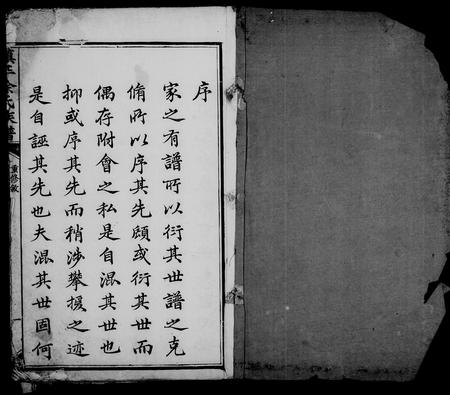 序
家之有譜所以衍其世譜之克
脩所以序其先顧或衍其世而
偶存附會之私是自混其世也
抑或序其先而稍涉攀援之迹
是自誣其先也夫混其世固何
氏族譜
重修敘